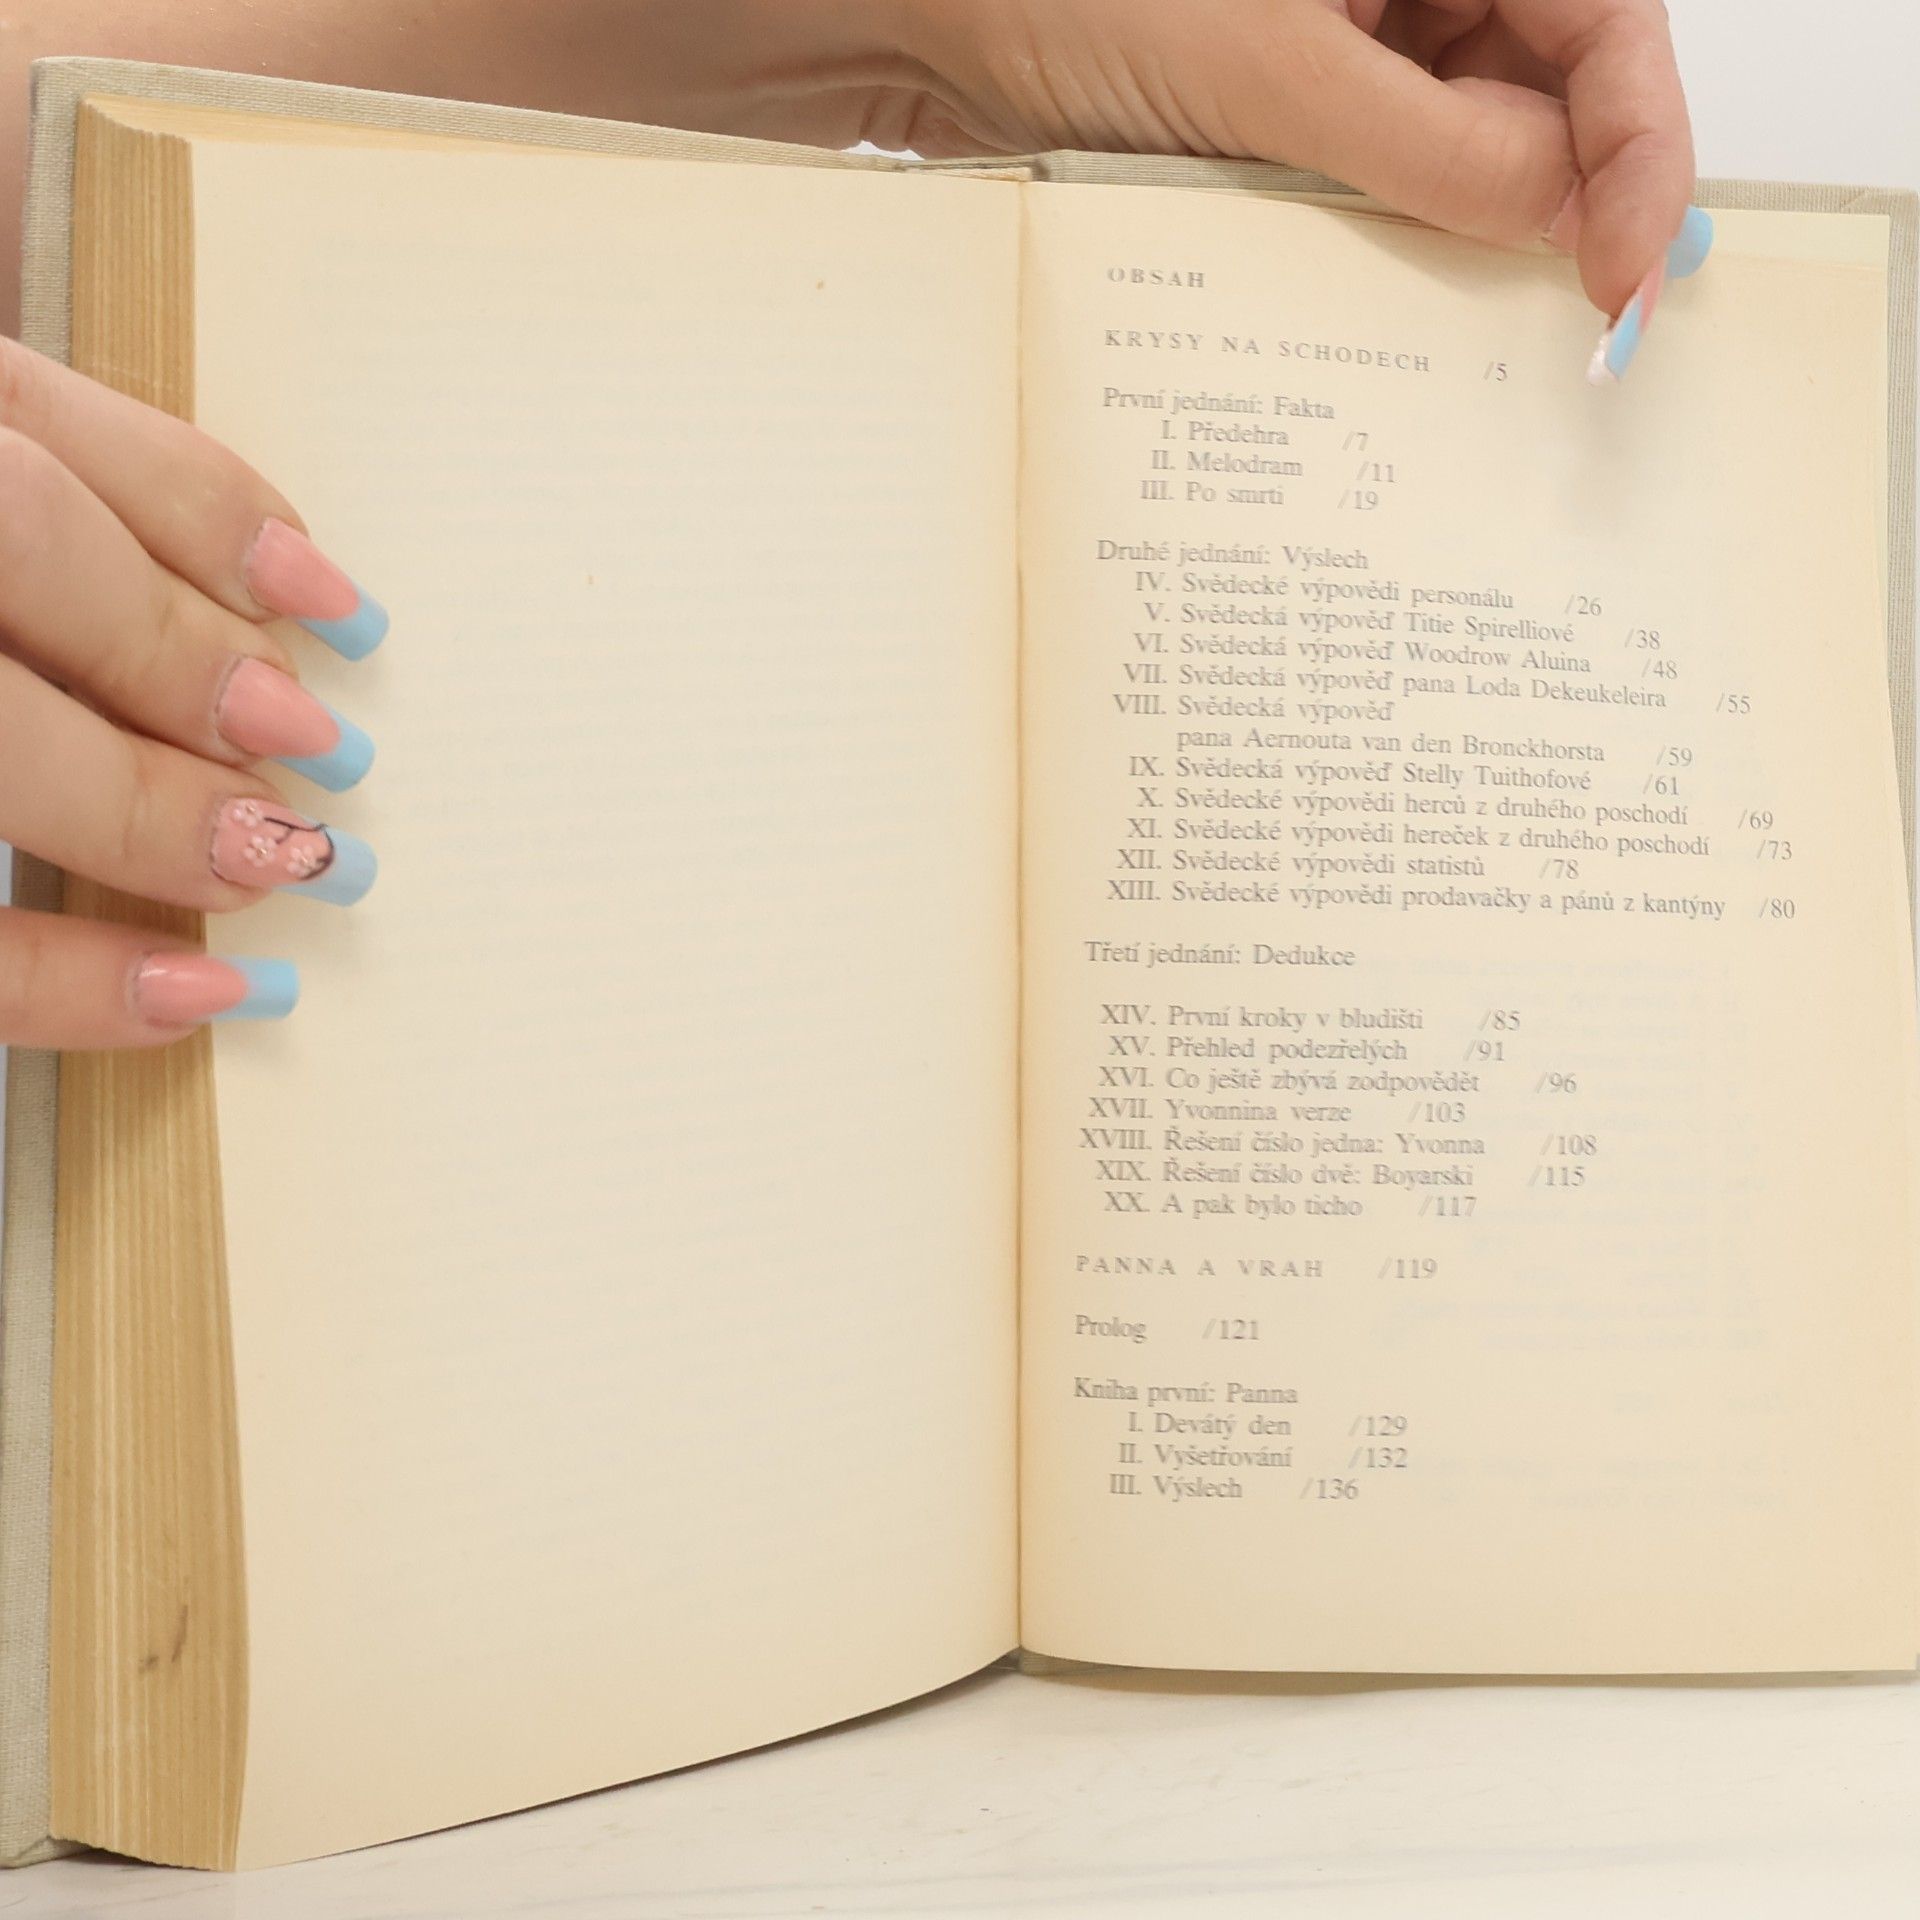 OBSAH
KRYSY NA SCHODECH /5
První jednání: Fakta
I. Předehra /7
II. Melodram /11
III. Po smrti /19
Druhé jednání: Výslech
IV. Svědecké výpovědi personálu /26
V. Svědecká výpověď Titie Spirelliové /38
VI. Svědecká výpověď Woodrow Aluina /48
VII. Svědecká výpověď pana Loda Dekeukeleira /55
VIII. Svědecká výpověď
pana Aernouta van den Bronckhorsta /59
IX. Svědecká výpověď Stelly Tuithofové /61
X. Svědecké výpovědi herců z druhého poschodí /69
XI. Svědecké výpovědi hereček z druhého poschodí /73
XII. Svědecké výpovědi statistů /78
XIII. Svědecké výpovědi prodavačky a pánů z kantýny /80
Třetí jednání: Dedukce
XIV. První kroky v bludišti /85
XV. Přehled podezřelých /91
XVI. Co ještě zbývá zodpovědět /96
XVII. Yvonnina verze /103
XVIII. Řešení číslo jedna: Yvonna /108
XIX. Řešení číslo dvě: Boyarski /115
XX. A pak bylo ticho /117
PANNA A VRAH /119
Prolog /121
Kniha první: Panna
I. Devátý den /129
II. Vyšetřování /132
III. Výslech /136